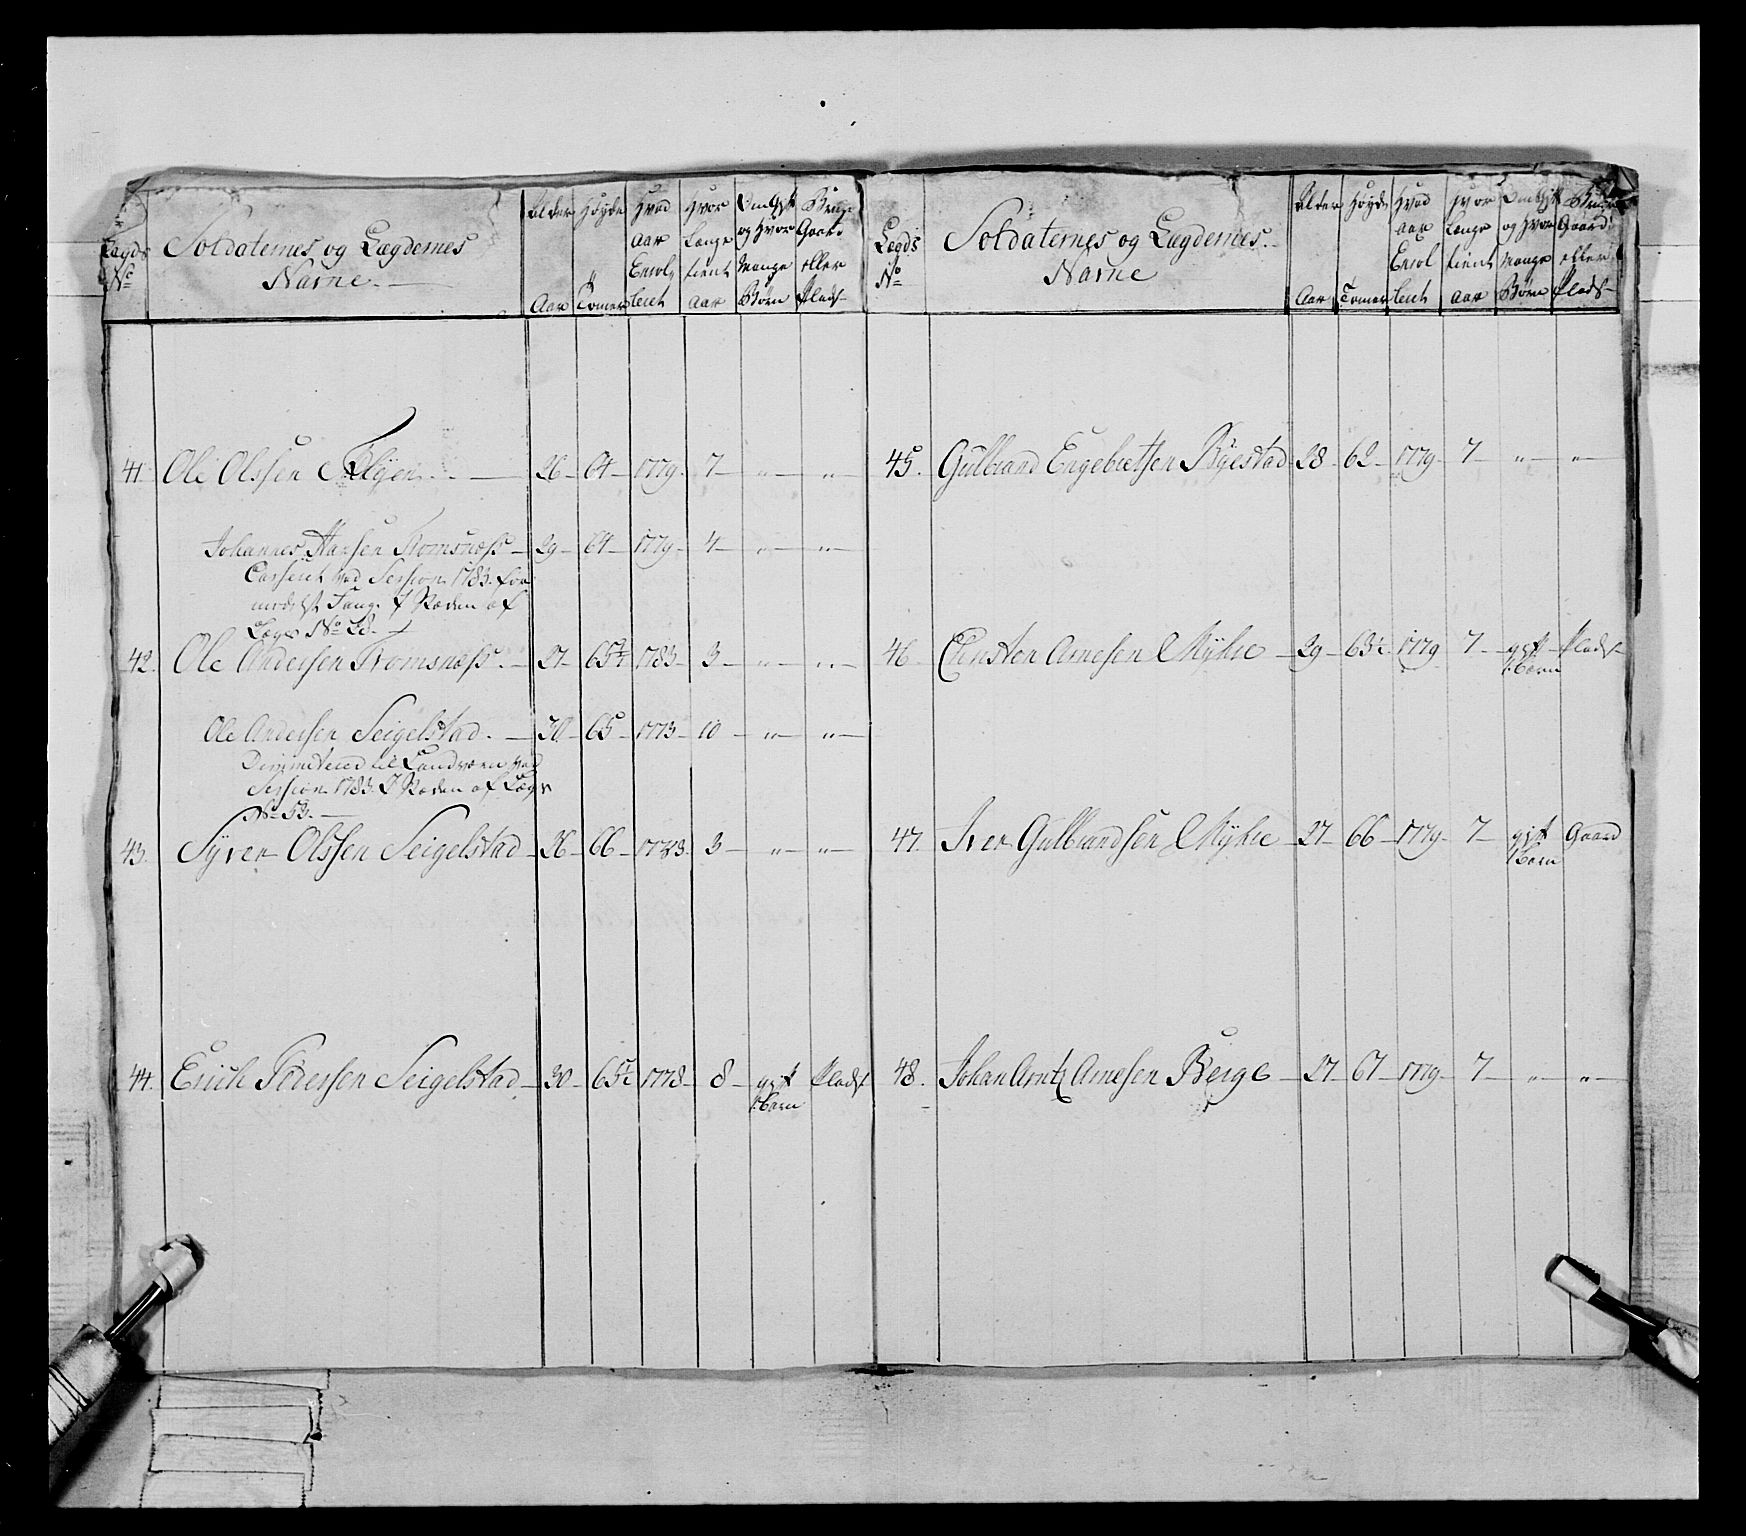 Lægds No
Soldaternes og Lægdernes Navne
Alder Aar
Høyde Tomer
Hvad Aar Enrolleret
Hvor Længe tient Aar
Om Gift og Hvor Mange Børn
Gaard eller Plads
41. Ole Olssen 26 64 1779 7 " "
Johannes Hansen Tromsnæss 29 64 1779 4 " "
Casseret ved Session 1783 for
af
Lægd No 28
42. Ole Andersen Tromsnæss 27 65½ 1783 3 " "
Ole Andersen Seigelstad 30 65 1773 10 " "
Dimmiteret til Landværn ved
Session 1783 af Lægd
No 53.
43. Syver Olssen Seigelstad 26 66 1783 3 " "
44. Erich Pedersen Seigelstad 30 65½ 1778 8 gift Plads
1 Barn
Legds No
Soldaternes og Lægdernes Navne
Alder Aar
Høyde Tomer
Hvad Aar Enrolleret
Hvor Længe tient Aar
Om Gift og Hvor Mange Børn
Gaard eller Plads
45. Gulbrand Engebretsen Bÿestad 28 62 1779 7 " "
46. Christen Arnesen Mÿhre 29 63½ 1779 7 gift Plads
1 Barn
47. Iver Gulbrandsen Mÿhre 27 66 1779 7 gift Gaard
1 Barn
48. Johan Arntz Arnesen Berge 27 67 1779 7 " "